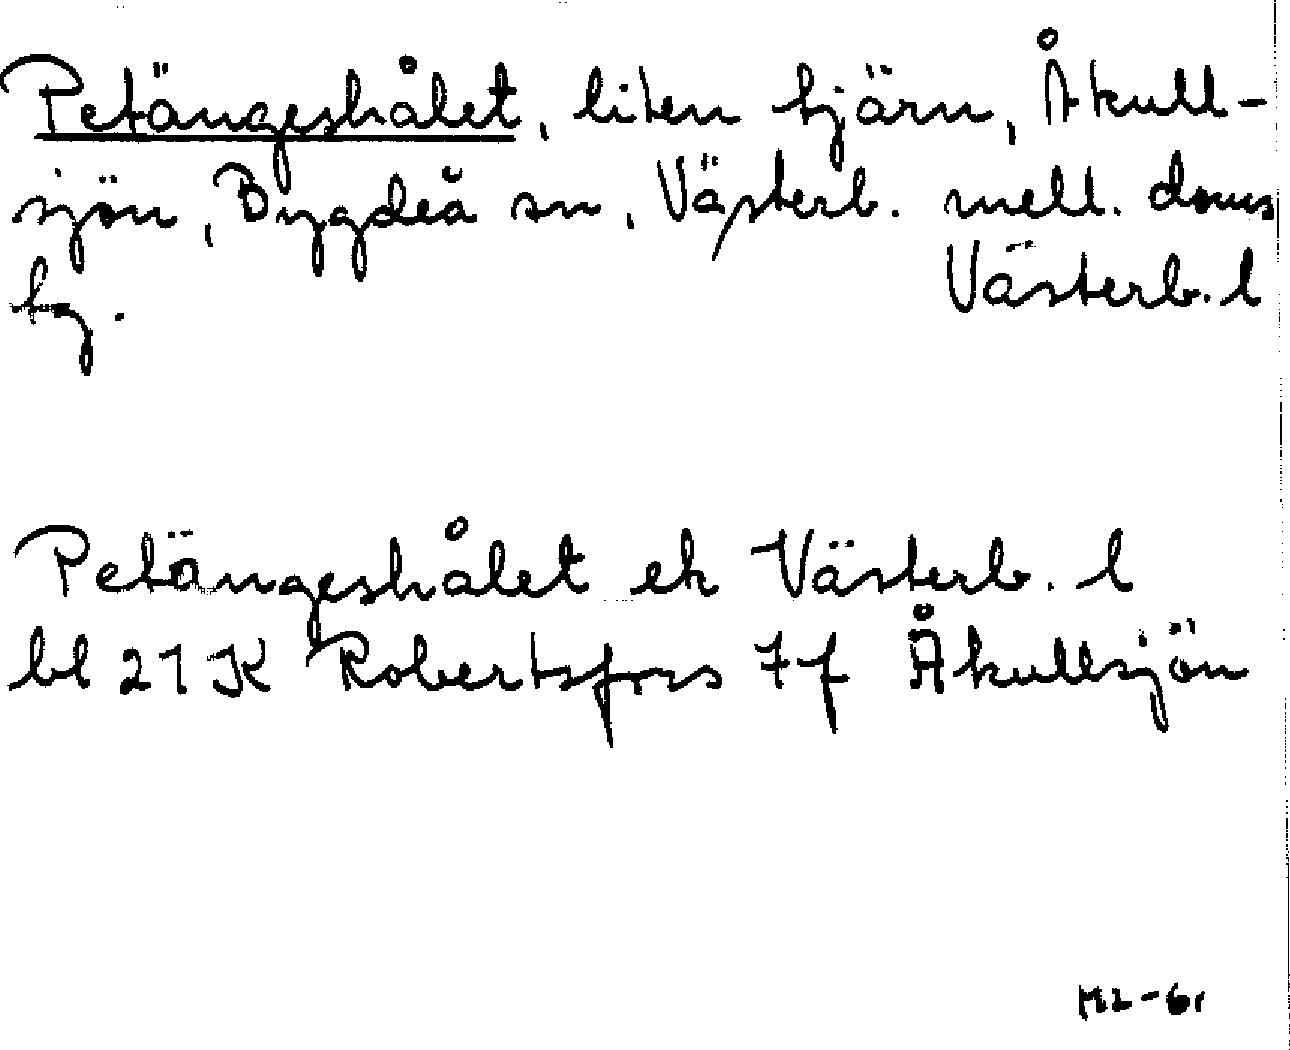 Petängeshålet, liten tjärn, Åkull-
sjön, Bygdeå sn, Västerb. mell. doms
tg. Västerb. l
Petängeshålet ek Västerb. l
bl 21K Robertsfors 7f Åkullsjön